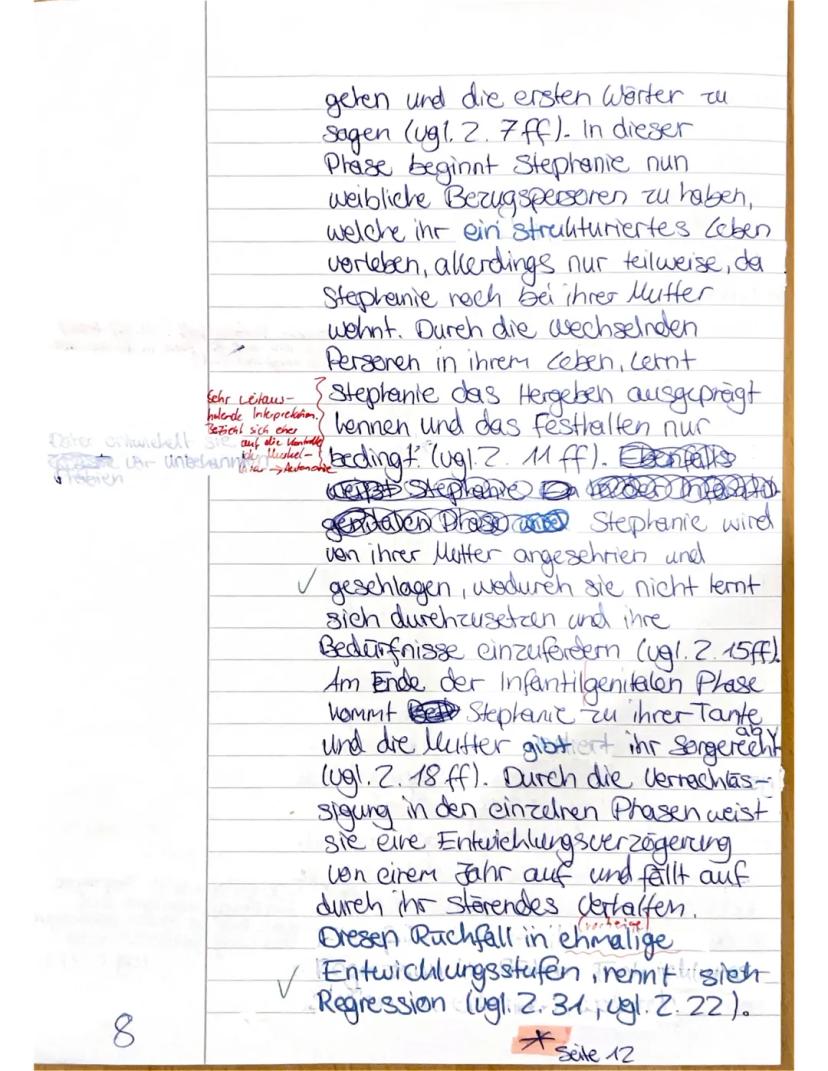 gehen und die ersten Wörter zu
sagen (vgl. Z. 7ff). In dieser
Phase beginnt Stephanie nun
weibliche Bezugspersonen zu haben,
welche ihr ein strukturiertes Leben
vorleben, allerdings nur teilweise, da
Stephanie noch bei ihrer Mutter
wohnt. Durch die wechselnden
Personen in ihrem Leben, lernt
Stephanie das Hergeben ausgeprägt
kennen und das Festhalten nur
bedingt. (vgl. Z. 11ff). Ebenfalls
Stephanie
Phase Stephanie wird
von ihrer Mutter angeschrien und
geschlagen, wodurch sie nicht lernt
sich durchzusetzen und ihre
Bedürfnisse einzufordern (vgl. Z. 15ff).
Am Ende der Infantilgenitalen Phase
kommt Stephanie zu ihrer Tante
und die Mutter gibt ihr Sorgerecht ab
(vgl. Z. 18ff). Durch die Vernachläs-
sigung in den einzelnen Phasen weist
sie eine Entwicklungsverzögerung
von einem Jahr auf und fällt auf
durch ihr störendes Verhalten.
(vorherige)
Diesen Rückfall in ehmalige
Entwicklungsstufen, nennt sich
Regression (vgl. Z. 31, vgl. Z. 22).
* Seite 12
Sehr weitaus-
holende Interpretation.
Bezieht sich eher
auf die Kontrolle
der Muskel-
→ Autonomie
8